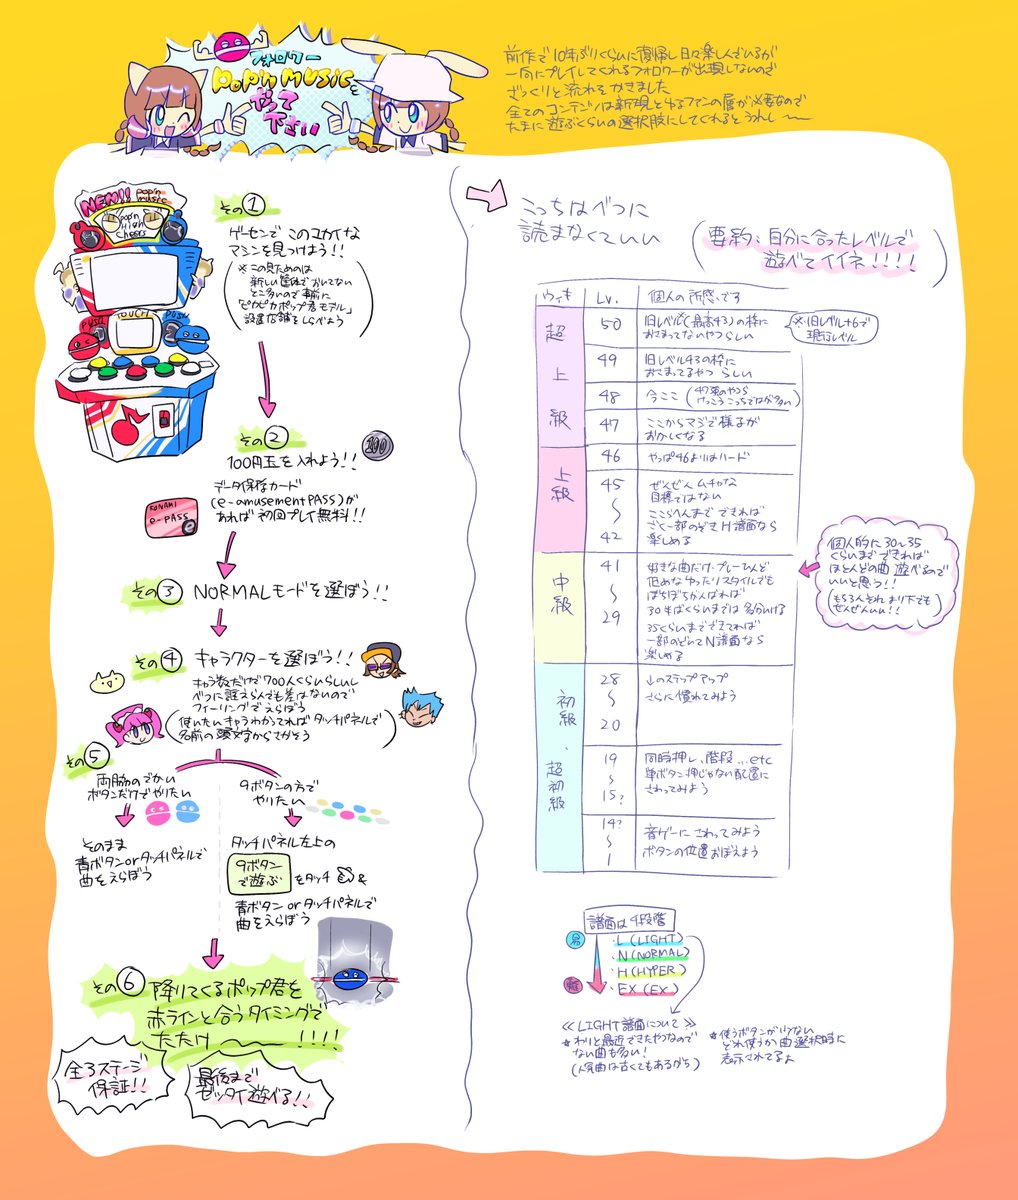 フォロワー
pop'n musicを
やって
下さい
前作で10年ぶりくらいに復帰し日々楽しんでいるが
一向にプレイしてくれるフォロワーが出現しないので
ざっくりと流れをかきました
全てのコンテンツは新規とゆるファンの層が必要なので
たまに遊ぶくらいの選択肢にしてくれるとうれし〜
NEW!! pop'n music
pop'n
High
Cheers
PUSH
TOUCH
PUSH
その①
ゲーセンで このユカイな
マシンを見つけよう!!
※この見ためのは
新しい筐体でおいてない
とこ多いので事前に
「ピカピカポップ君モデル」
設置店舗をしらべよう
その②
100円玉を入れよう!!
100
データ保存カード
(e-amusement PASS)が
あれば初回プレイ無料!!
KONAMI
e-PASS
e
その③ NORMALモードを選ぼう!!
その④ キャラクターを選ぼう!!
キャラ数だけで700人くらいらしいし
べつに誰えらんでも差はないので
フィーリングでえらぼう
(使いたいキャラわかってれば タッチパネルで
名前の頭文字からさがそう)
その⑤
両脇のでかい
ボタンだけでやりたい
そのまま
青ボタンorタッチパネルで
曲をえらぼう
9ボタンの方で
やりたい
タッチパネル左上の
9ボタン
で遊ぶ
をタッチ &
青ボタンorタッチパネルで
曲をえらぼう
その⑥ 降りてくるポップ君を
赤ラインと合うタイミングで
たたけ ー !!!!
全3ステージ
保証!!
最後まで
ゼッタイ遊べる!!
こっちはべつに
読まなくていい
(要約:自分に合ったレベルで
遊べてイイネ!!!!)
ウィキ Lv. 個人の所感です
超上級
50 旧レベル※(最高43)の枠に
おさまってないやつらしい
※旧レベル+6で
現行レベル
49 旧レベル43の枠に
おさまってるやつ らしい
48 今ここ (47落のやつら
けっこうこっちでは多い)
47 ここからマジで様子が
おかしくなる
上級
46 やっぱ46よりはハード
45
〜
42
ぜんぜんムチャな
目標ではない
ここらへんまで できれば
ごく一部のぞきH譜面なら
楽しめる
中級
41
〜
29
好きな曲だけ・プレーもんど
ぼちぼちがんばれば
30半ばくらいまでは多分いける
35くらいまでできてれば
一部のぞいてN譜面なら
楽しめる
個人的に30〜35
くらいまでできれば
ほとんどの曲 遊べるので
いいと思う!!
(もち3人それ より下でも
ぜんぜんいい!!)
初級・超初級
28
〜
20
↓のステップアップ
さらに慣れてみよう
19
〜
15?
同時押し、階段…etc
単ボタン押しじゃない配置に
さわってみよう
14?
〜
1
音ゲーに さわってみよう
ボタンの位置おぼえよう
譜面は4段階
易
・L (LIGHT)
・N (NORMAL)
・H (HYPER)
・EX (EX)
難
≪LIGHT譜面について≫
*わりと最近できたやつなので
ない曲も多い!
(人気曲は古くてもあるがち)
*使うボタンが少ない
どれ使うか曲選択時に
表示されてるよ